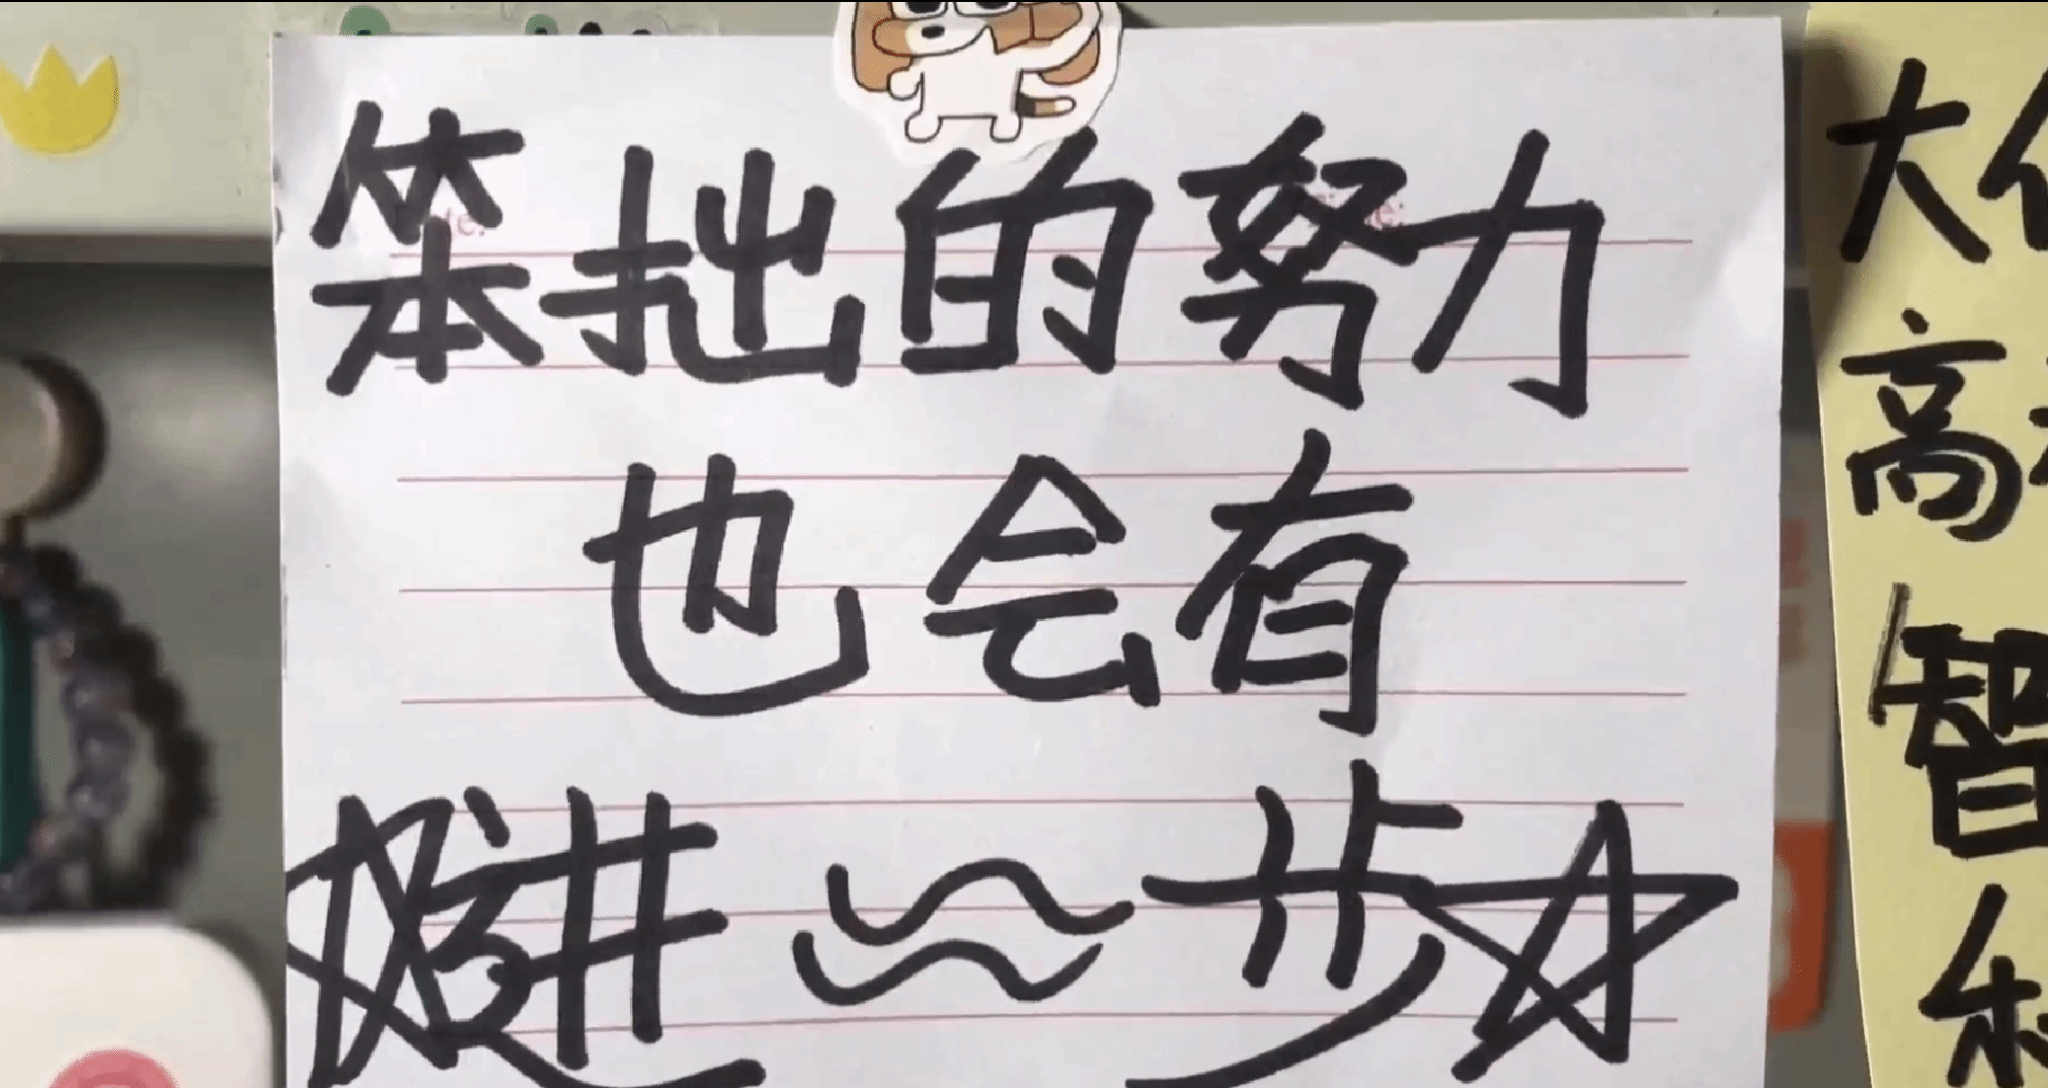 笨拙的努力
也会有
进步
大
高
智